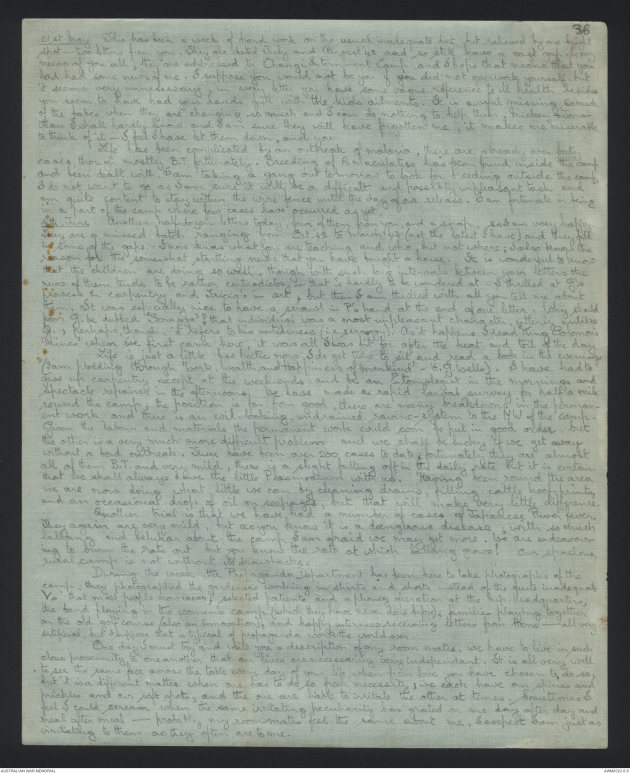 36
31st May. This has been a week of hard work on the usual inadequate diet, but relieved by one bright
spot — two letters from you. They are dated July and August 43 and so still leave a vast gap in
news of you all; they are addressed to Changi Internment Camp and I hope that means that you
had had some news of me. I suppose you would not be you if you did not overwork yourself but
it seems very unnecessary; in every letter you have some vague reference to ill health, besides
you seem to have had your hands full with the kids ailments. It is awful missing so much
of the babes when they are changing so much and I can do nothing to help them; Mickey
than I shall hardly know and I am sure they will have forgotten me; it makes me miserable
to think of it — I feel I have let them down, and you.
Life has been complicated by an outbreak of malaria, there are already over forty
cases, though mostly B.T. fortunately. Breeding of A. maculatus has been found inside the camp
and been dealt with. I am taking a gang out tomorrow to look for breeding outside the camp,
I do not want to go as I am sure it will be a difficult and possibly unpleasant task and
am quite content to stay within the wire fence until the day of our release. I am fortunate in being
in a part of the camp where few cases have occurred as yet.
Another haul of letters today, four of them from you, and a snap, so I am very happy.
They are a missed batch ranging from Oct 42 to March 43 (not the latest I have) and they fill
in some of the gaps. I now know what you are teaching and who, but not where; I also know the
reason for the somewhat startling news that you have bought a house. It is wonderful to know
that the children are doing so well, though with such big intervals between your letters the
news of them tends to be rather contradictory — that is hardly to be wondered at. I thrilled at
prowess in carpentry and in art, but then I am thrilled with all you tell me about
It was especially nice to have a scrawl in hand at the end of one letter. Why should
poor G. be dubbed "Scrooge"? That individual was a most unpleasant character, utterly unlike
G.; perhaps, though, it refers to his untidiness (i.e. scroogy). As it happens I read "King Solomon's
Mines" when we first came here, it was all I was fit for after the heat and toil of the day.
Life is just a little less hectic now, I do get time to sit and read a book in the evenings
(I am plodding through "Work, Wealth and Happiness of Mankind" — H.G. Wells). I have had to
give up carpentry except at the weekends and be an Entomologist in the mornings and
spectacle repairer in the afternoons. We have made a rapid larval survey for half a mile
round the camp & the position is far from good, there are many breakdowns in the perman-
ent work and there is an evil-looking undrained ravine-system to the N.W. of the camp.
Given the labour and materials the permanent work could soon be put in good order but
the other is a very much more difficult problem and we shall be lucky if we get away
without a bad outbreak. There have been over 200 cases to date, fortunately they are almost
all of them B.T. and very mild, there is a slight falling off in the daily rate but it is certain
that we shall always have the little Plasmodium with us. Having been round the area
we are now doing what little we can by cleaning drains, filling cattle hoof prints,
and an occasional drop of oil on seepages, but that will make very little difference.
Another trial is that we have had a number of cases of Japanese River Fever.
They again are very mild but as you know it is a dangerous disease, with so much
lallang and belukar about the camp I am afraid we may get more. We are endeavour-
ing to burn the rats out but you know the rate at which lallang grows! Our spacious,
rural camp is not without its drawbacks.
During the week the Propaganda Department has been here to take photographs of the
camp, they photographed the gardeners working in shirts and shorts instead of the quite inadequate
V. that most people now wear, selected patients and a phoney function at the hospital headquarters,
the band playing in the women's camp (which they have never done before), families playing together
on the old golf course (also an innovation), and happy internees receiving letters from home — all very
artificial, but I suppose that is typical of propaganda work the world over.
One day I must try and write you a description of my room mates; we have to live in such
close proximity to one another that our lives are necessarily very independent. It is all very well
to see the same face across the table every day of your life when from love you have chosen to do so,
but it is a different matter when one has to do so from necessity; we each have our spines and
prickles and our soft spots, and the one are liable to irritate the other at times. Sometimes I
feel I could scream when the same irritating peculiarity has grated on me day after day and
meal after meal — probably my room-mates feel the same about me, I expect I am just as
irritating to them as they often are to me.
AUSTRALIAN WAR MEMORIAL